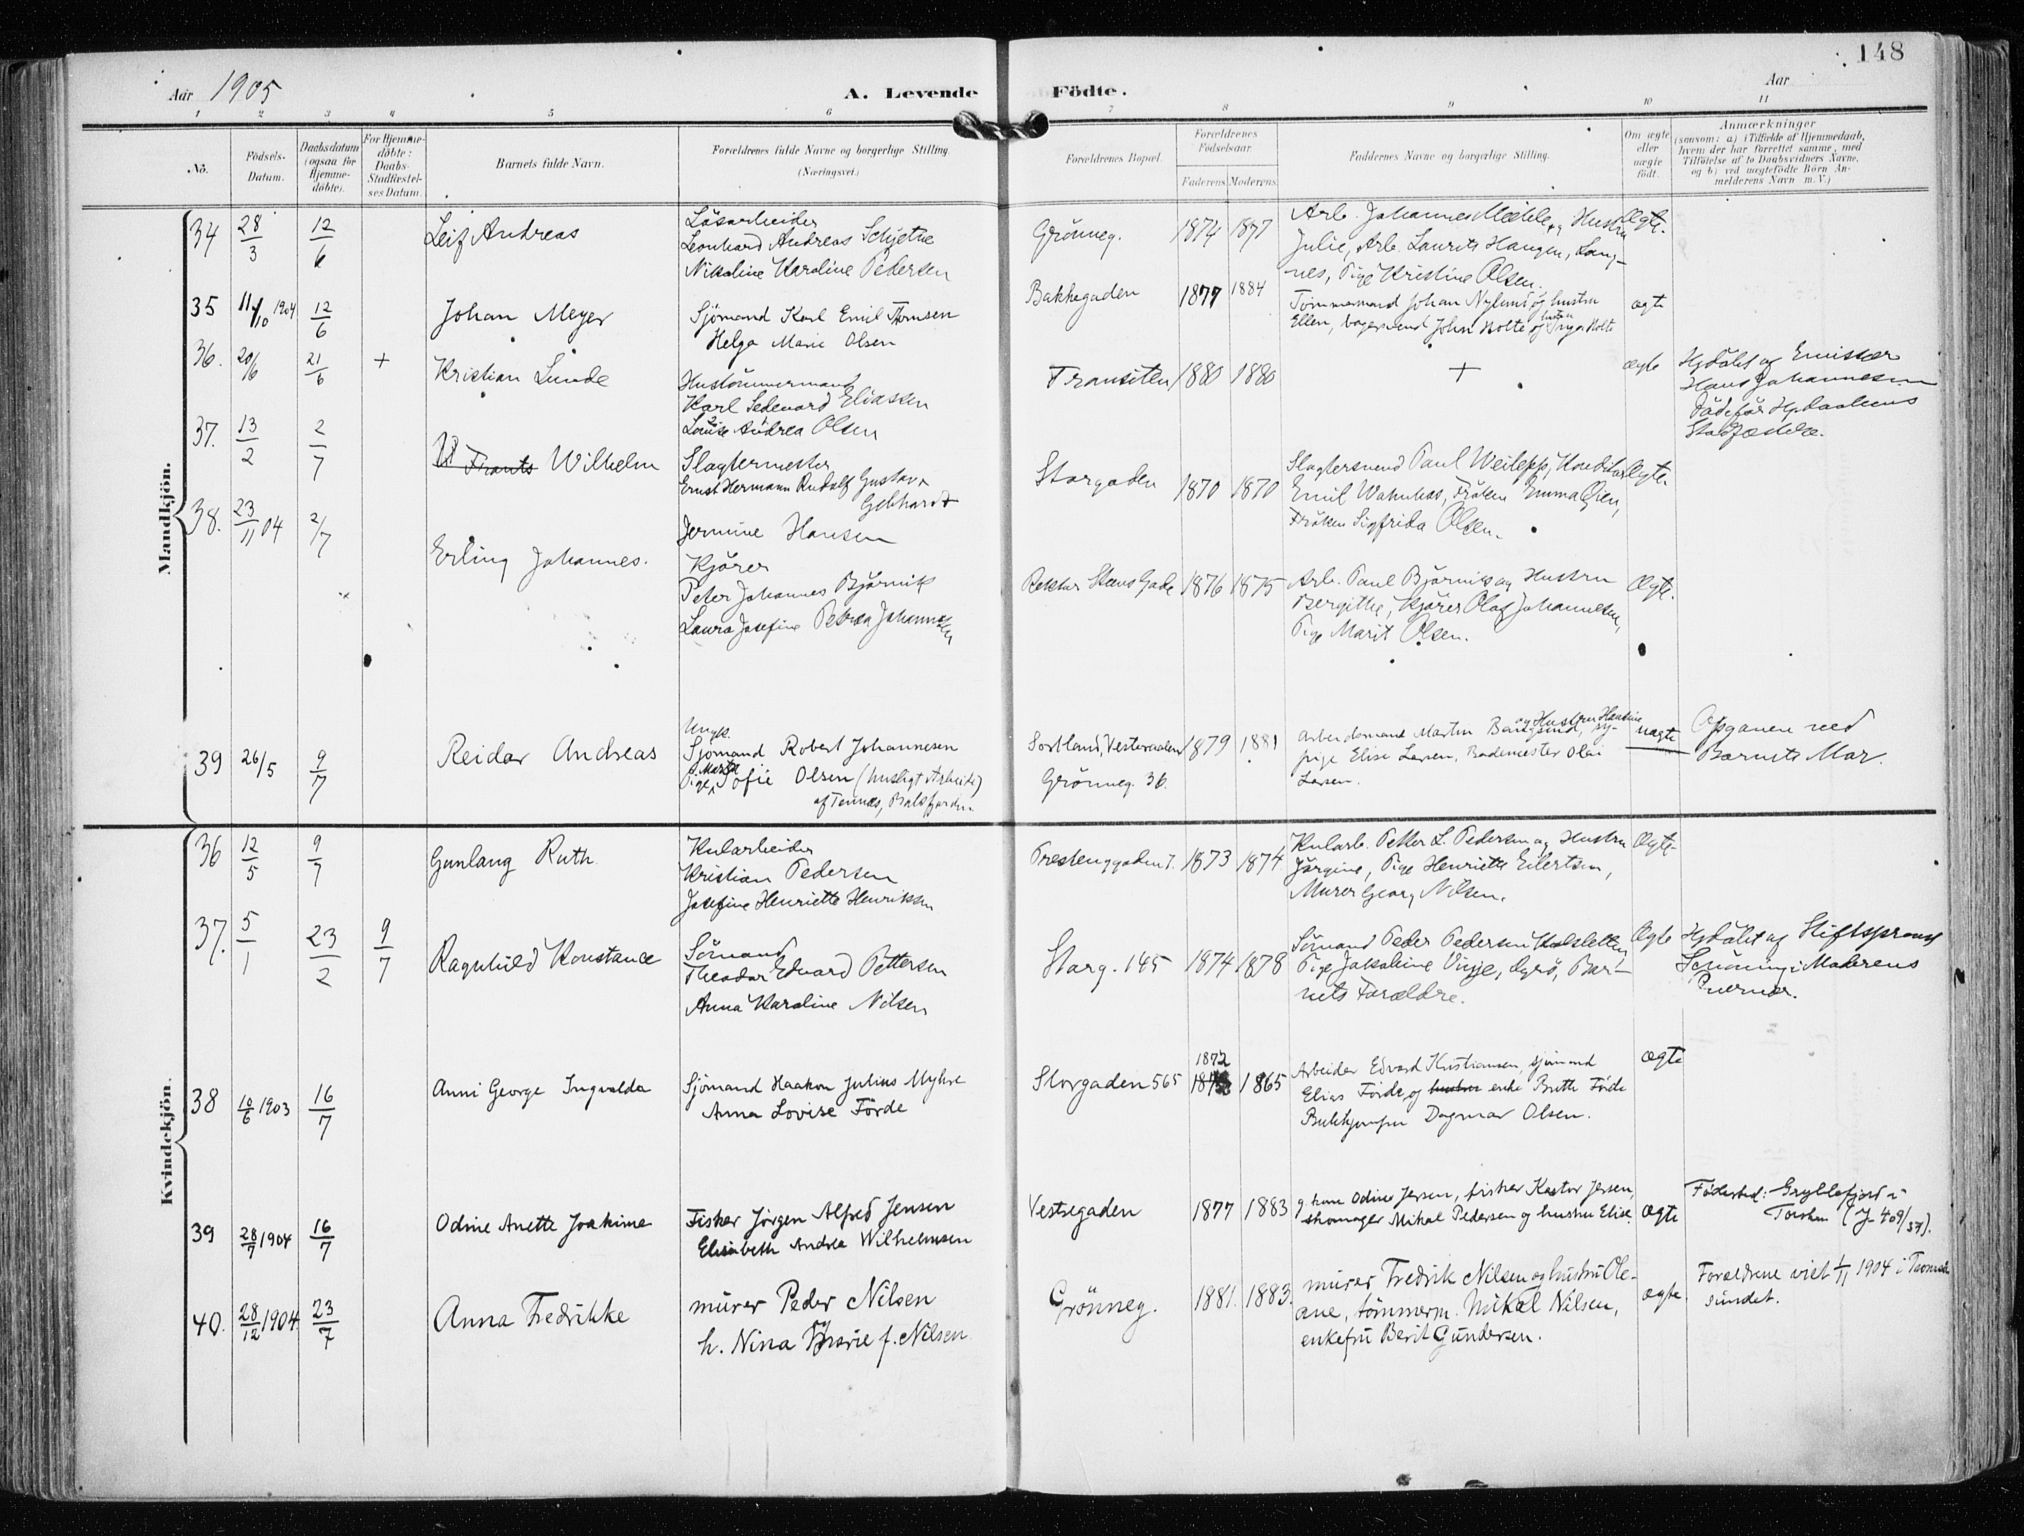 148
Aar 1905
A. Levende Födte.
Aar
1 2 3 4 5 6 7 8 9 10 11
No.
Födsels-Datum.
Daabsdatum (ogsaa for Hjemmedöbte).
For Hjemmedöbte: Daabs Stadfæstelses Datum.
Barnets fulde Navn.
Forældrenes fulde Navne og borgerlige Stilling. (Næringsvei.)
Forældrenes Bopæl.
Forældrenes Födselsaar.
Faderens Moderens
Faddernes Navne og borgerlige Stilling.
Om ægte eller uægte födt.
Anmærkninger
(saasom: a) i Tilfælde af Hjemmedaab, hvem der har forrettet samme, med Tilföielse af to Daabsvidners Navne, og b) ved uægtefödte Börn Anmelderens Navn m. V.)
Mandkjön.
34 28/3 12/6 Leif Andreas
Lösarbeider
Leonhard Andreas Schjetne
Nikoline Karoline Pedersen
Grönneg. 1874 1877
Arb. Johannes Mæhle og Hustru
Julie, Arb. Laurits Haugen, Lang-
nes, Pige Kristine Olsen.
Ægte.
35 11/10 1904 12/6 Johan Meyer
Sjömand Karl Emil Thomsen
Helga Marie Olsen
Bakkegaden 1877 1884
Tömmermand Johan Nylund og hustru
Ellen, bagersvend John Holte og hustru Inga Holte
ægte
36. 20/6 21/6 + Kristian Lunde
Hustömmermand
Karl Sedevard Eliassen
Louise Andrea Olsen
Transiten 1880 1880
+
ægte
Hjdöbt af Emissær
Hans Johannesen
Död før Hjdaabens
Stadfæstelse.
37. 13/2 2/7 Frants Wilhelm
Slagtermester
Ernst Hermann Rudolf Gustav
Gebhardt
Jermine Hansen
Storgaden 1870 1870
Slagtersvend Paul Weilepp, Konditor
Emil Wahnhss, Fröken Emma Oien,
Fröken Sigfrida Olsen.
Ægte.
38. 23/11 04 2/7 Erling Johannes.
Kjörer
Peter Johannes Björnvik
Laura Josefine Petrea Johannesen
Rektor Steens Gade 1876 1875
Arb. Paul Björnvik og Hustru
Bergitte, Kjörer Olaf Johannesen,
Pige Marit Olsen.
Ægte.
39 26/5 9/7 Reidar Andreas
Ungk.
Sjömand Robert Johannesen
Pige Marta Sofie Olsen (husligt Arbeide)
af Tennes, Balsfjorden
Sortland, Vesteraalen 1879 1881
Grönneg. 36.
Arbeidsmand Martin Bardsund, og Hustru Hansine sy-
pige Elise Larsen, Bademester Olai
Larsen.
uægte
Opgaven ved
Barnets Mor.
Kvindekjön.
36 12/5 9/7 Gunlaug Ruth
Kularbeider
Kristian Pedersen
Josefine Henriette Henriksen
Prestenggaden 7. 1873 1874
Kularb. Petter L. Pedersen og Hustru
Jörgine, Pige Henriette Eilertsen,
Murer Georg Nilsen.
Ægte
37. 5/1 23/2 9/7 Ragnhild Konstance
Sömand
Theodor Edvard Pettersen
Anna Karoline Nilsen
Storg. 145 1874 1878
Sömand Peder Pedersen Kalsletten
Pige Jakobine Vinje, Gyrö, Bar-
nets Forældre.
Ægte
Hjdöbt af Stiftsprovst
Schöning i Moderens
Nærvær.
38 10/6 1903 16/7 Anni George Ingvalda
Sjömand Haakon Julius Myhre
Anna Lovise Förde
Storgaden 565 1872 1865
Arbeider Edvard Kristiansen, sjömand
Elias Förde og hustru enke Brith Föde
Butikjomfru Dagmar Olsen.
ægte
39 28/7 1904 16/7 Odine Anette Joakime
Fisker Jörgen Alfred Jensen
Elisabeth Andrea Wilhelmsen
Vestregaden 1877 1883
Gkone Odine Jensen, fisker Kastor Jensen,
skomager Mikal Pedersen og hustru Elise.
ægte
Födested: Gryllefjord i
Torsken (J. 409/37).
40. 28/12 1904 23/7 Anna Fredrikke
murer Peder Nilsen
h. Nina Marie f. Nilsen
Grönneg. 1881. 1883.
murer Fredrik Nilsen og hustru Ole-
ane, tömmerm. Mikal Nilsen,
enkefru Berit Gundersen.
ægte.
Forældrene viet 1/11 1904 i Tromsö-
sundet.